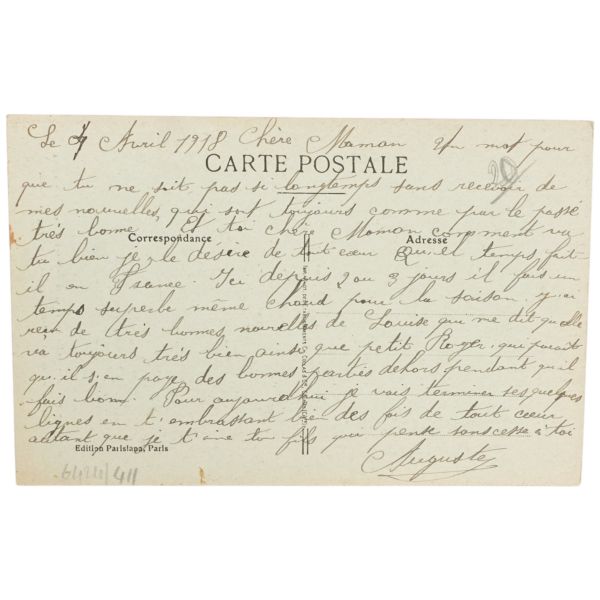 Le 4 Avril 1918 Chère Maman Un mot pour
CARTE POSTALE
20
que tu ne soit pas si longtemps sans recevoir de
mes nouvelles, qui sont toujours comme par le passé
très bonne. Et toi chère Maman comment va
Correspondance
Adresse
tu bien je le désire de tout cœur Quel temps fait
il en France. Ici depuis 2 ou 3 jours il fait un
temps superbe même chaud pour la saison. J'ai
reçu de très bonnes nouvelles de Louise qui me dit qu'elle
va toujours très bien ainsi que petit Roger, qui parait
qu'il s'en paye des bonnes parties dehors pendant qu'il
fais bon. Pour aujourd'hui je vais terminer ses quelques
lignes en t'embrassant bien des fois de tout cœur
autant que je t'aime ton fils qui pense sans cesse à toi
Edition Parisiana, Paris
Auguste
6424/411